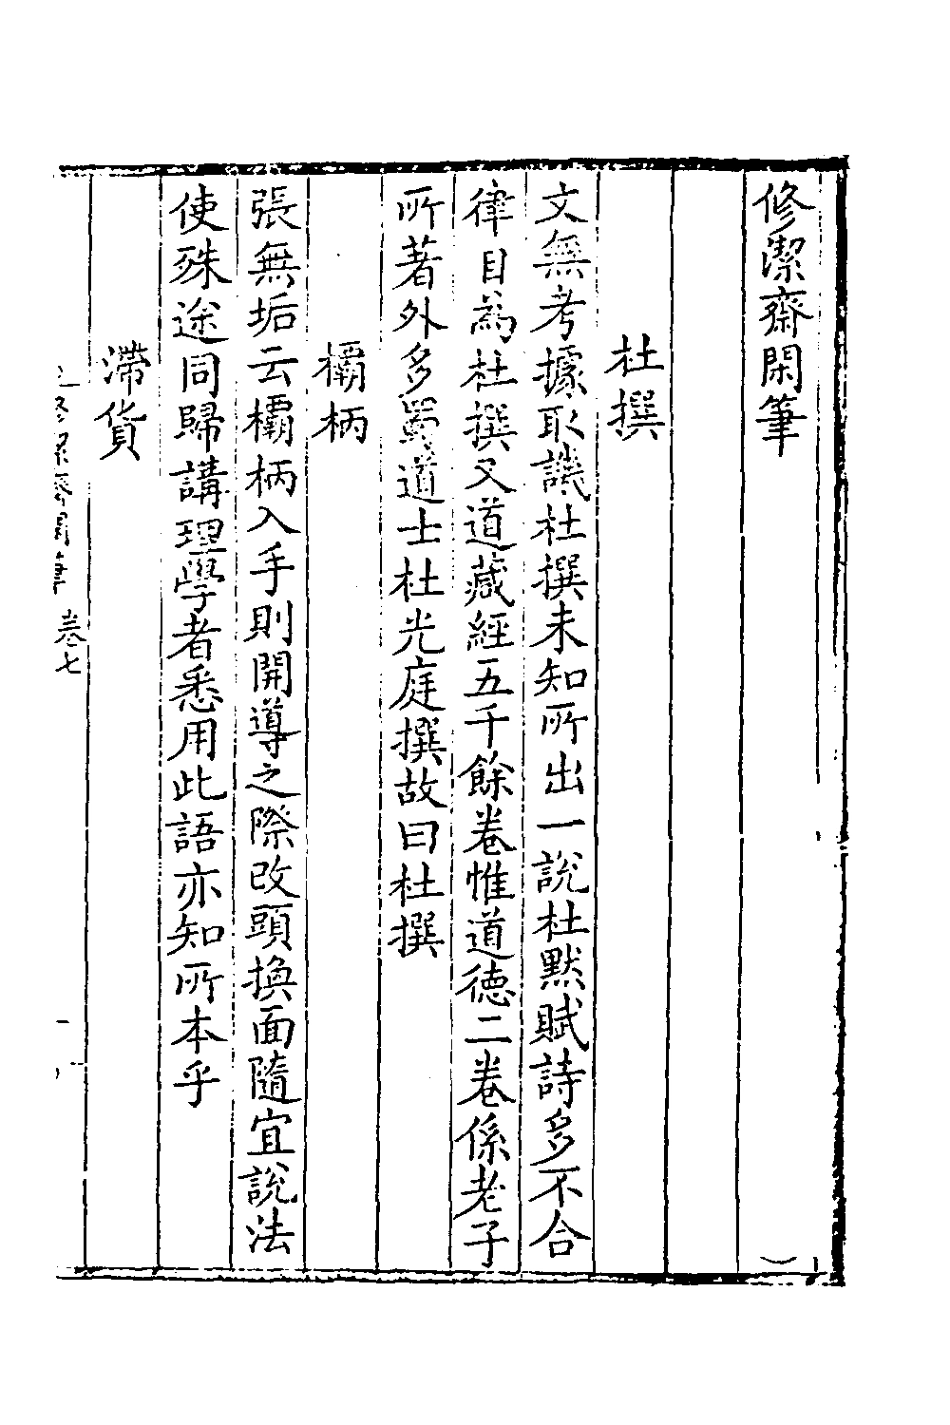 修潔齋閑筆
杜撰
文無考據取譏杜撰未知所出一說杜默賦詩多不合
律目為杜撰又道藏經五千餘卷惟道德二卷係老子
所著外多蜀道士杜光庭撰故曰杜撰
欛柄
張無垢云欛柄入手則開導之際改頭換面隨宜說法
使殊途同歸講理學者悉用此語亦知所本乎
滯貨
修潔齋閑筆 卷七